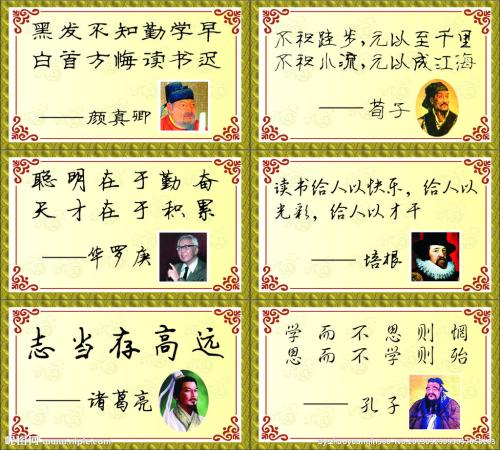 黑发不知勤学早
白首方悔读书迟
——颜真卿
不积跬步,无以至千里
不积小流,无以成江海
——荀子
聪明在于勤奋
天才在于积累
——华罗庚
读书给人以快乐,给人以
光彩,给人以才干
——培根
志当存高远
——诸葛亮
学而不思则惘
思而不学则殆
——孔子
昵图网 www.nipic.com